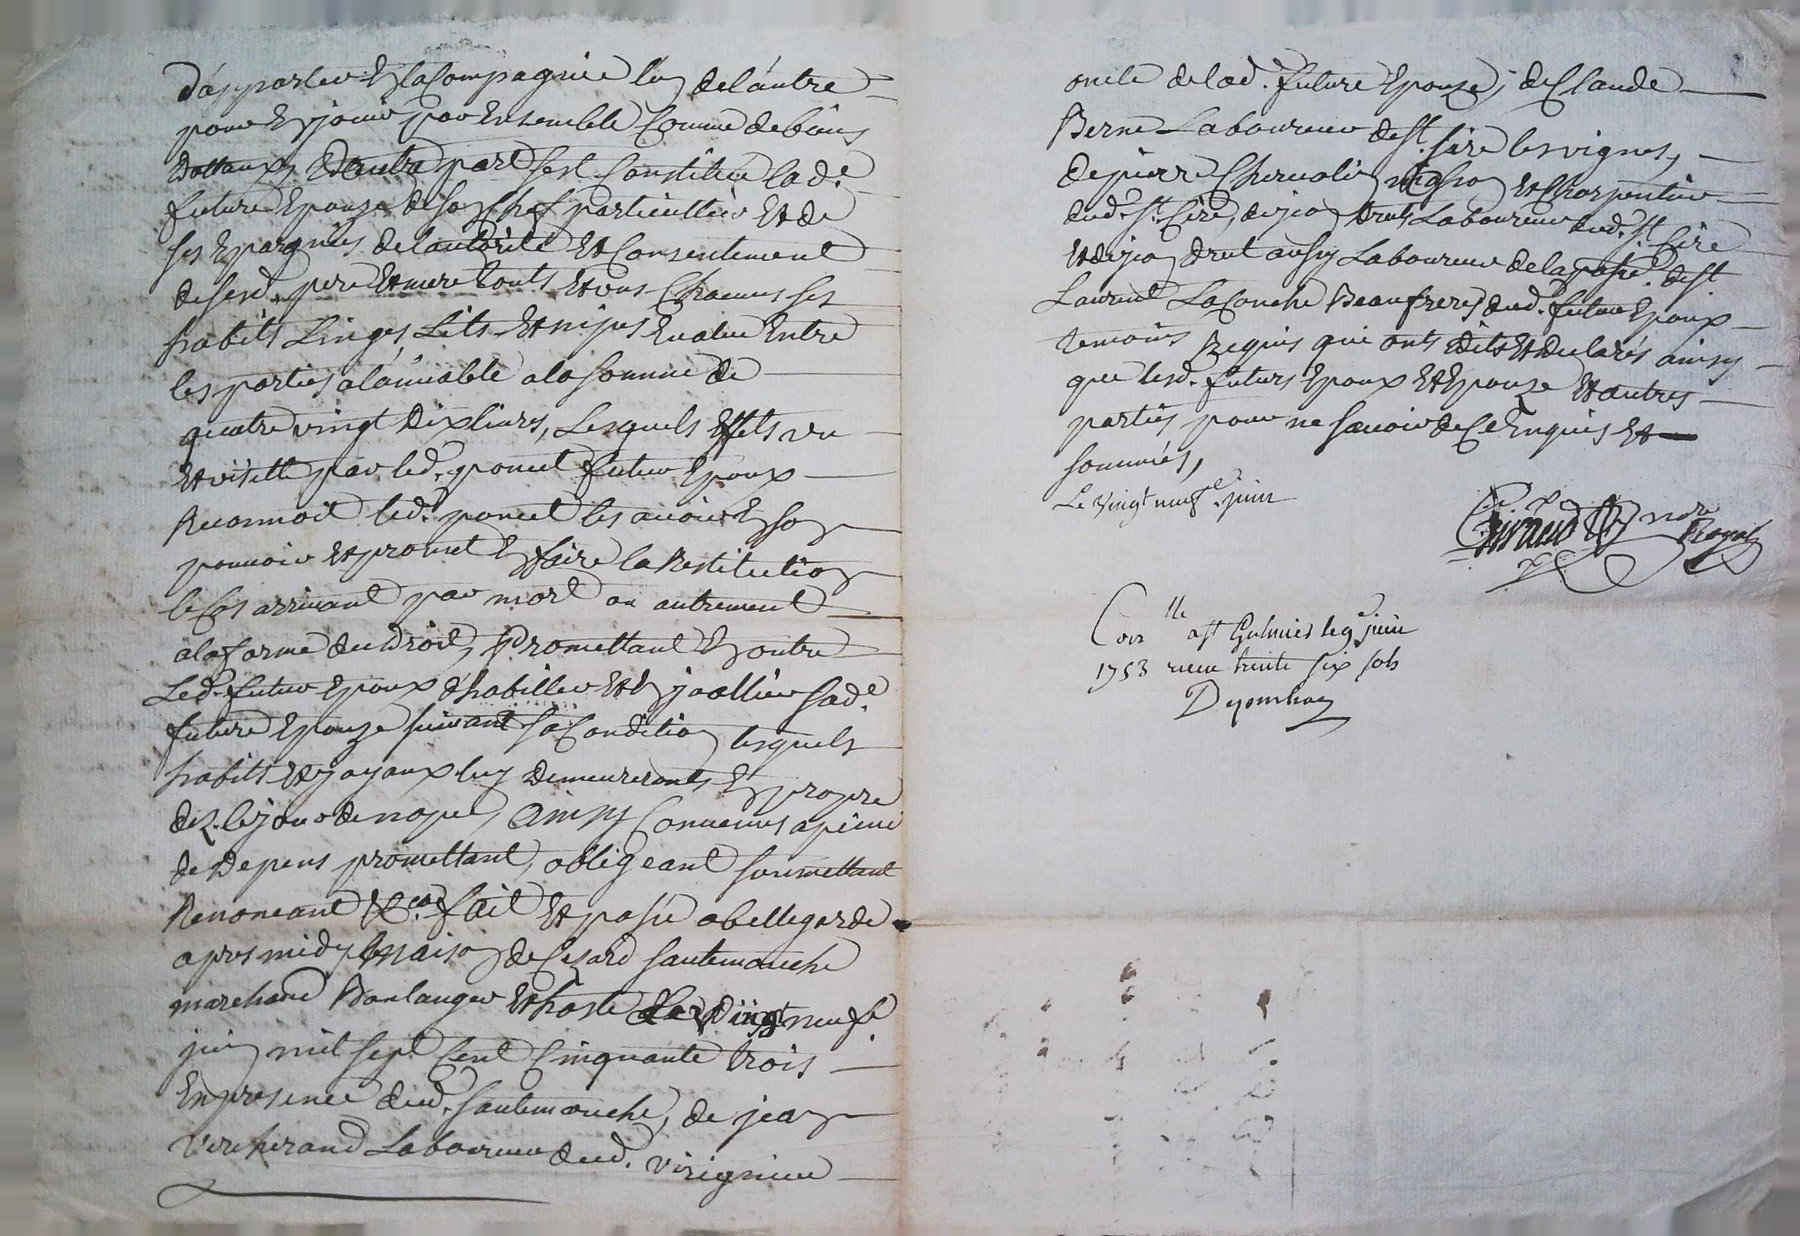 d'apporter En la Compagnie l'un de l'autre
pour En jouir par Ensemble Comme de biens
dottaux, D'autre part sest Constituée lad.e
future Epouze de son Chef particullier Et de
ses Epargnes de l'autorité Et Consentement
de sesd. pere Et mere touts Et uns Chacuns ses
habits Linges Lits Et nipes Evalué Entre
les parties a l'amiable a la somme de
quatre vingt dix livres, Lesquels Effets vu
Et visitté par led. poncet futur Epoux
Reconnoit led. poncet les avoir En son
pouvoir Et promet En faire la Restitution
le Cas arrivant par mort ou autrement
a la forme du Droit, Promettant En outre
Led. futur Epoux d'habiller Et En joallier sad.e
future Epouze suivant sa Condition lesquels
habits Et joyaux luy Demeureronts En propre
dez le jour de nopces, Ainsy Convenus a peine
de Depens promettant, obligeant soumettant
Renonçant &c.a fait Et passé a bellegarde
apres midy maison de Cesard sautemouche
marchand Boulanger Et hoste Le Vingt neufe
juin mil sept Cent Cinquante trois
En presence dud. sautemouche, de jean
Vercherand Laboureur dud. virignieu
oncle de lad. future Epouze, de Claude
Berne Laboureur de St. Cire les vignes,
de pierre Chervalin masson Et Charpentier
dud. St. Cire, dejean drut Laboureur dud. St. Cire
Et dejean drut aussy Laboureur de la passe. de St.
Laurent La Conche Beaufreres dud. futur Epoux
temoins Requis qui onts Dits Et Declarés ainsy
que lesd. futurs Epoux Et Epouze Et autres
parties pour ne sçavoir de Ce Enquis Et
sommés,
Le vingt neufe juin
Giraud nore Royal
Con.lle a st Galmier le 9e juin
1753 reçeu trente six sols